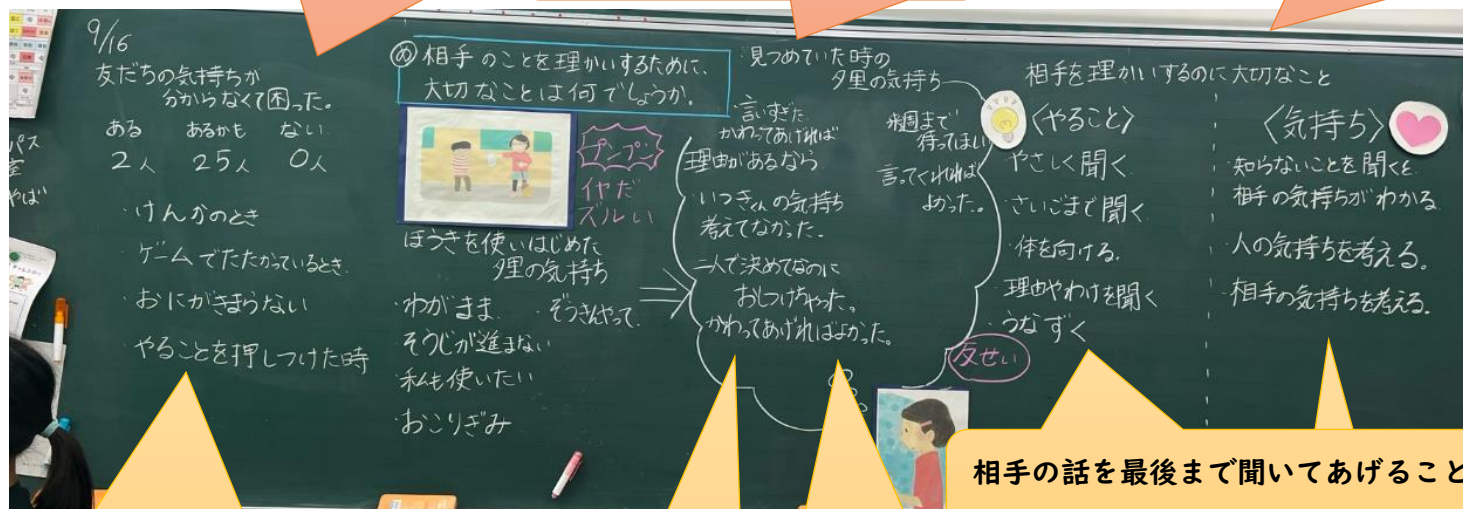 9/16
友だちの気持ちが
分からなくて困った。
ある あるかも ない
2人 25人 0人
・けんかのとき
・ゲームでたたかっているとき
・おにがきまらない
・やることを押しつけた時
め 相手のことを理かいするために、
大切なことは何でしょうか。
プンプン
イヤだ
ズルい
ほうきを使いはじめた
夕里の気持ち
・わがまま ・ぞうきんやって
・そうじが進まない
・私も使いたい
・おこりぎみ
・見つめていた時の
夕里の気持ち
・言いすぎた
かわってあげれば
理由があるなら
・いつきくんの気持ち
考えてなかった。
二人で決めてなのに
おしつけちゃった。
かわってあげればよかった。
来週まで
待ってほしい
言ってくれれば
よかった。
反せい
相手を理かいするのに大切なこと
〈やること〉
やさしく聞く
・さいごまで聞く
・体を向ける。
・理由やわけを聞く
・うなずく
〈気持ち〉
・知らないことを聞くと
相手の気持ちがわかる
・人の気持ちを考える。
・相手の気持ちを考える。
相手の話を最後まで聞いてあげること